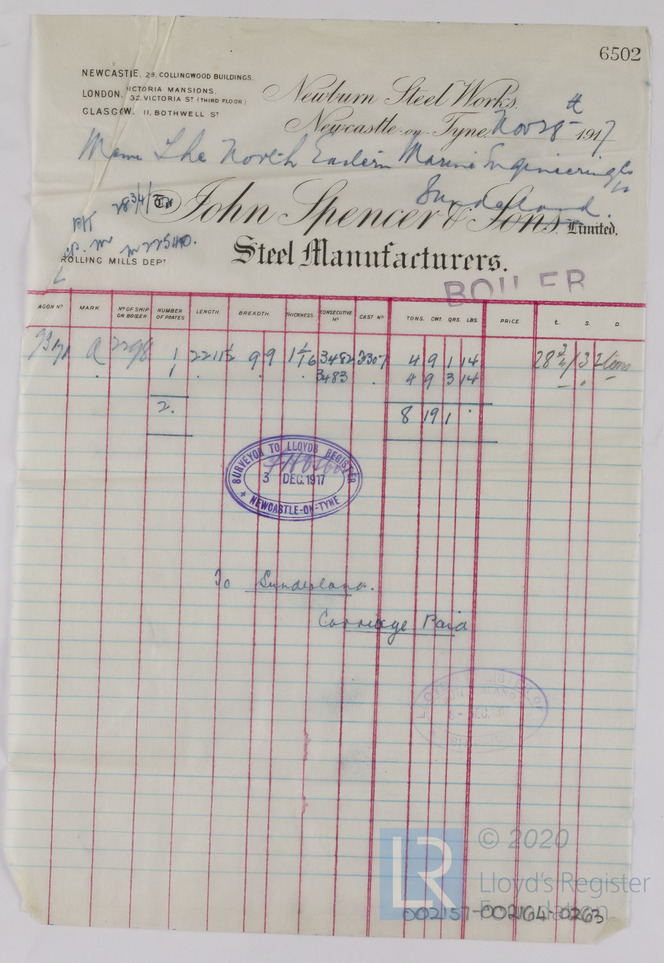 6502
NEWCASTLE. 29, COLLINGWOOD BUILDINGS.
LONDON. VICTORIA MANSIONS.
32, VICTORIA ST (THIRD FLOOR)
GLASGOW. 11, BOTHWELL ST
Newburn Steel Works,
Newcastle-on-Tyne, Nov 28th 1917
The North Eastern Marine Engineering Co
Sunderland.
28 3/4
To John Spencer & Sons Limited.
ROLLING MILLS DEPT
Steel Manufacturers.
BOILER
AGON No MARK No OF SHIP OR BOILER NUMBER OF PLATES LENGTH. BREADTH. THICKNESS. CONSECUTIVE No CAST No TONS. CWT. QRS. LBS. PRICE £. S. D.
a 2298 1 22 11 1/2 9 9 1 1/16 3482 3307 4 9 1 14 28 3/4 / 32 tons
" 1 " " " 3483 4 9 3 14
2. 8 19 1 "
SURVEYOR TO LLOYDS REGISTER
3 DEC. 1917
NEWCASTLE-ON-TYNE
To Sunderland.
Carriage Paid
LR © 2020
Lloyd's Register
Foundation
002157-002164-0263